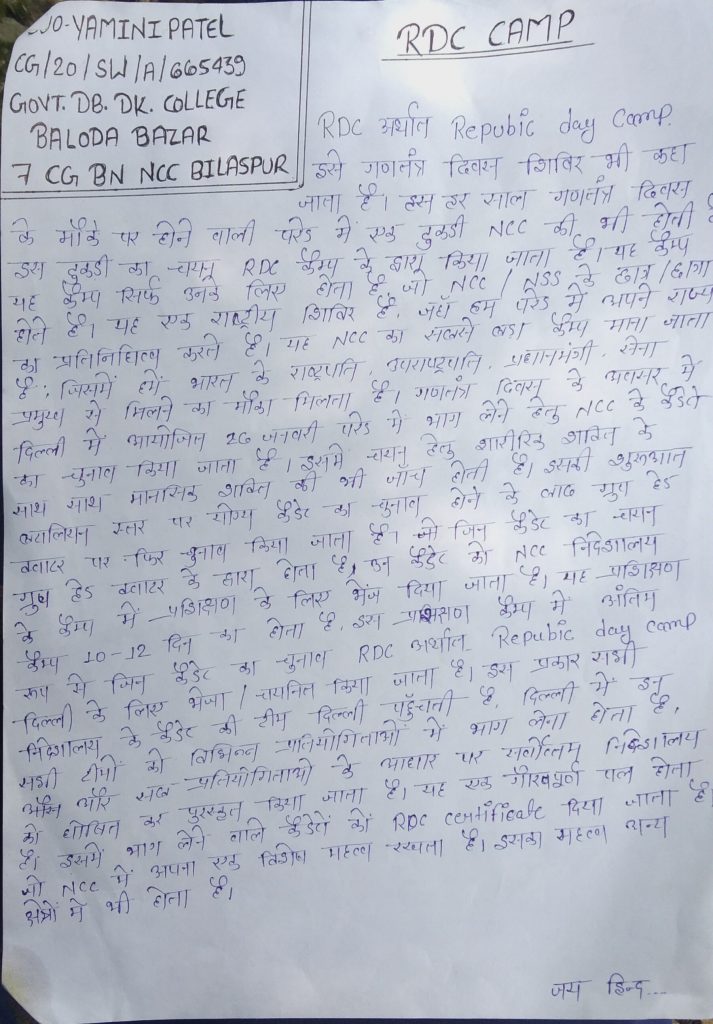 JO-YAMINI PATEL
CG/20/SW/A/665439
GOVT. DB. DK. COLLEGE
BALODA BAZAR
7 CG BN NCC BILASPUR
RDC CAMP
RDC अर्थात Repubic day Camp.
इसे गणतंत्र दिवस शिविर भी कहा
जाता है। इस हर साल गणतंत्र दिवस
के मौके पर होने वाली परेड में एक टुकडी NCC की भी होती है
इस टुकडी का चयन RDC कैम्प के द्वारा किया जाता है। यह कैम्प
यह कैम्प सिर्फ उनके लिए होता है, जो NCC / NSS के छात्र/छात्रा
होते है। यह एक राष्ट्रीय शिविर है, जहाँ हम परेड में अपने राज्य
का प्रतिनिधित्व करते है। यह NCC का सबसे बड़ा कैम्प माना जाता
है, जिसमें हमें भारत के राष्ट्रपति, उपराष्ट्रपति, प्रधानमंत्री, सेना
प्रमुख से मिलने का मौका मिलता है। गणतंत्र दिवस के अवसर में
दिल्ली में आयोजित 26 जनवरी परेड में भाग लेने हेतु NCC के कैडेटे
का चुनाव किया जाता है। इसमें चयन हेतु शारीरिक शक्ति के
साथ साथ मानसिक शक्ति की भी जाँच होती है। इसकी शुरूआत
बटालियन स्तर पर योग्य कैडेट का चुनाव होने के बाद ग्रुप हेड
क्वाटर पर फिर चुनाव किया जाता है। जिन कैडेट का चयन
ग्रुप हेड क्वाटर के द्वारा होता है, उन कैडेट को NCC निदेशालय
के कैम्प में प्रशिक्षण के लिए भेज दिया जाता है। यह प्रशिक्षण
कैम्प 10-12 दिन का होता है, इस प्रशिक्षण कैम्प में अंतिम
रूप से जिन कैडेट का चुनाव RDC अर्थात Repubic day camp
दिल्ली के लिए भेजा / चयनित किया जाता है। इस प्रकार सभी
निदेशालय के कैडेट की टीम दिल्ली पहुँचती है, दिल्ली में इन
सभी टीमों को विभिन्न प्रतियोगिताओं में भाग लेना होता है,
और सब प्रतियोगिताओ के आधार पर सर्वोत्तम निदेशालय
को घोषित कर पुरस्कृत किया जाता है। यह एक गौरवपूर्ण पल होता
है। इसमें भाग लेने वाले कैडेटें को RDC certificate दिया जाता है।
जो NCC में अपना एक विशेष महत्व रखता है। इसका महत्व अन्य
क्षेत्रों में भी होता है।
जय हिन्द...